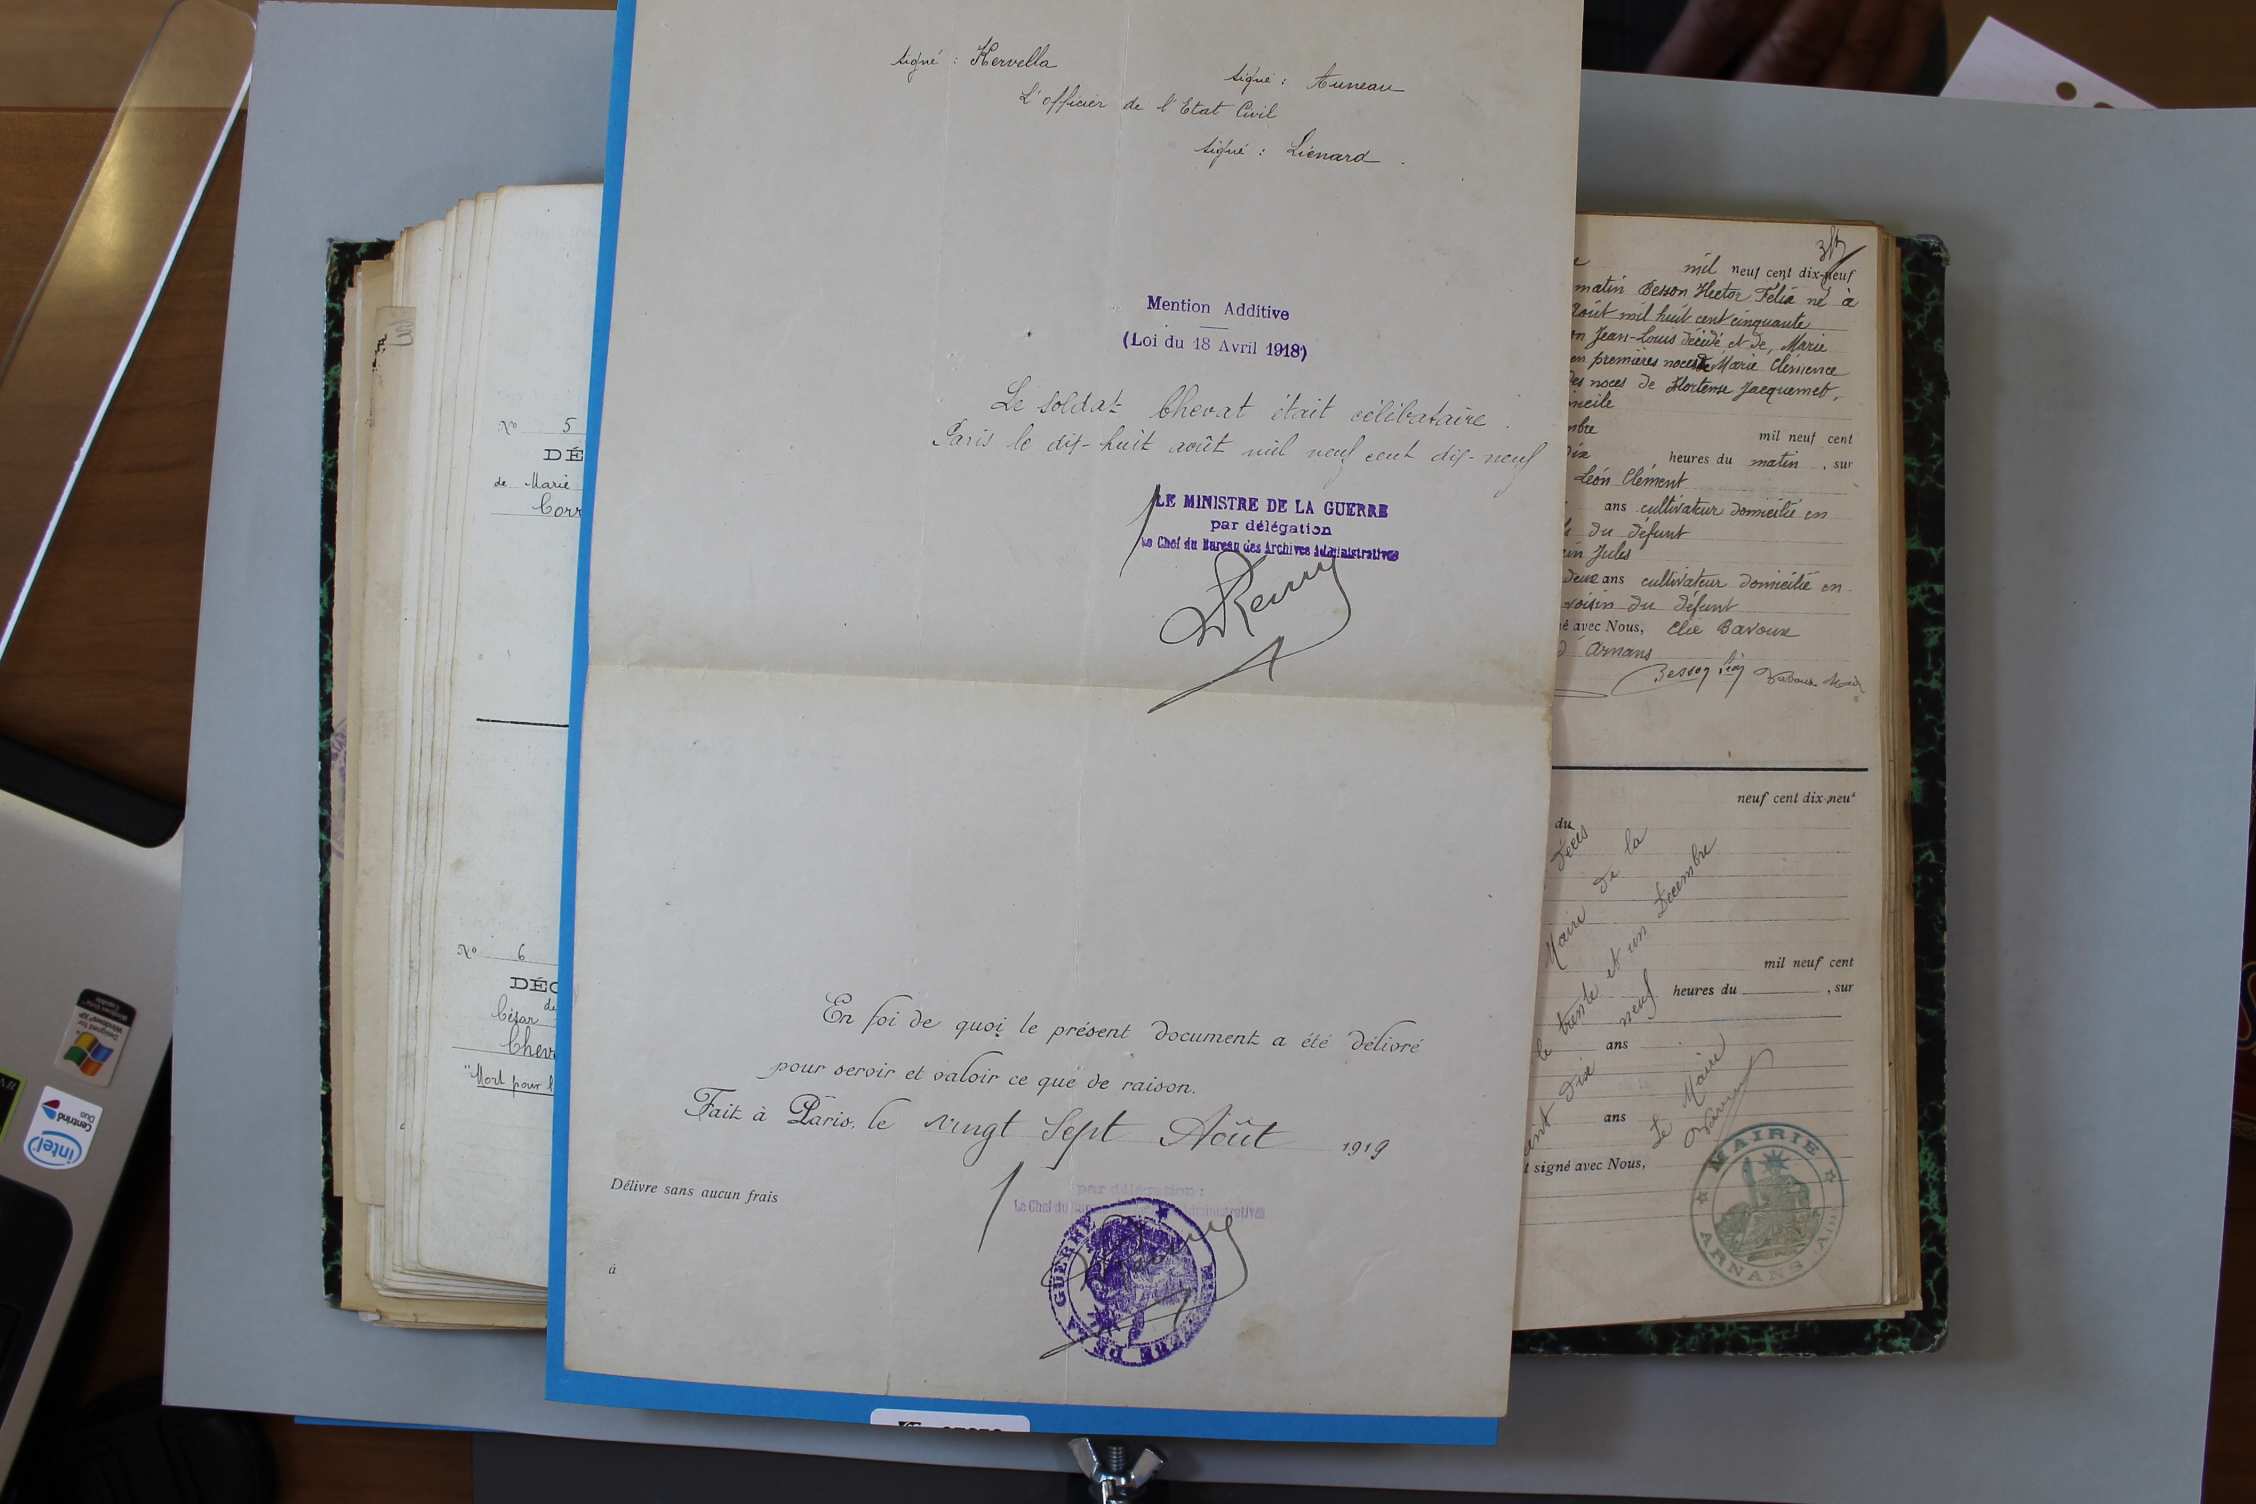 signé : Kervella
signé : Auneau
L'officier de l'Etat Civil
signé : Liénard.
Mention Additive
(Loi du 18 Avril 1918)
Le soldat Chevat était célibataire.
Paris le dix-huit août mil neuf cent dix-neuf
LE MINISTRE DE LA GUERRE
par délégation
Le Chef du Bureau des Archives Administratives
En foi de quoi le présent document a été délivré
pour servir et valoir ce que de raison.
Fait à Paris, le vingt sept Août 1919
Délivré sans aucun frais
par délégation :
Le Chef du
Administratives
à
GUERRE
No 5
DÉ
de Marie
Corr
No 6
DÉC
de
César
Chev
"Mort pour l
mil neuf cent dix-neuf
matin Besson Hector Félix né à
Août mil huit cent cinquante
on Jean-Louis décédé et de, Marie
en premières noces de Marie Clémence
des noces de Hortense Jacquemet,
micile
mbre mil neuf cent
dix heures du matin, sur
Léon Clément
ans cultivateur domicilié en
du défunt
in Jules
deux ans cultivateur domicilié en
voisin du défunt
é avec Nous, Elie Bavoux
d'Arnans
Besson Léon
neuf cent dix-neuf
du
décès
Maire de la
le trente et un Décembre
cent dix neuf
Le Maire
mil neuf cent
heures du , sur
ans
ans
t signé avec Nous,
MAIRIE
ARNANS
intel
Centrino
Duo